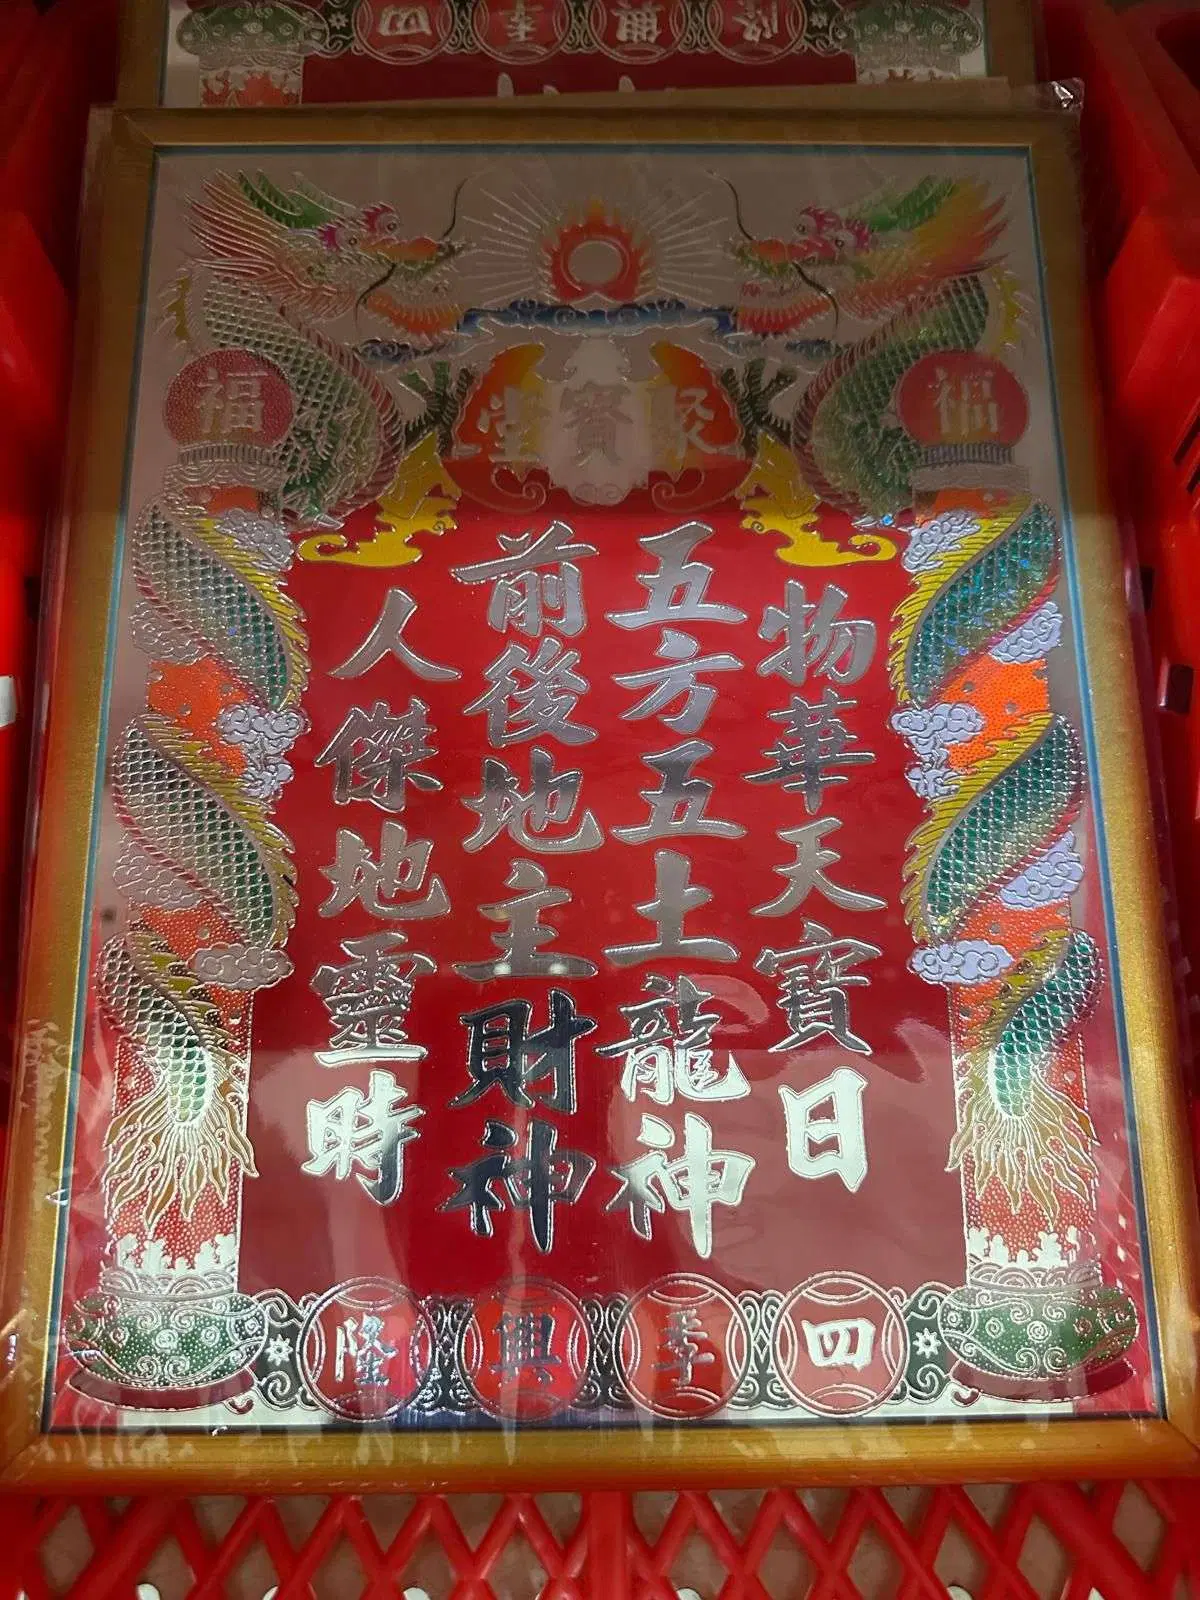 四季興隆
聚寶堂
福
福
物華天寶日
五方五土龍神
前後地主財神
人傑地靈時
四季興隆